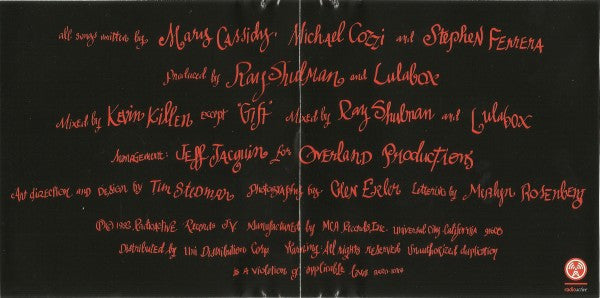 all songs written by Mary Cassidy, Michael Cozzi and Stephen Ferrera
Produced by Ray Shulman and Lulabox
Mixed by Kevin Killen except "Gift" Mixed by Ray Shulman and Lulabox
management: Jeff Jacquin for Overland Productions
Art direction and design by Tim Stedman Photography by: Glen Erler Lettering by Merilyn Rosenberg
Radioactive Records J.V. Manufactured by MCA Records, Inc. Universal City California
Distributed by Uni Distribution Corp. Warning: All rights reserved Unauthorized duplication
is a violation of applicable laws
radioactive